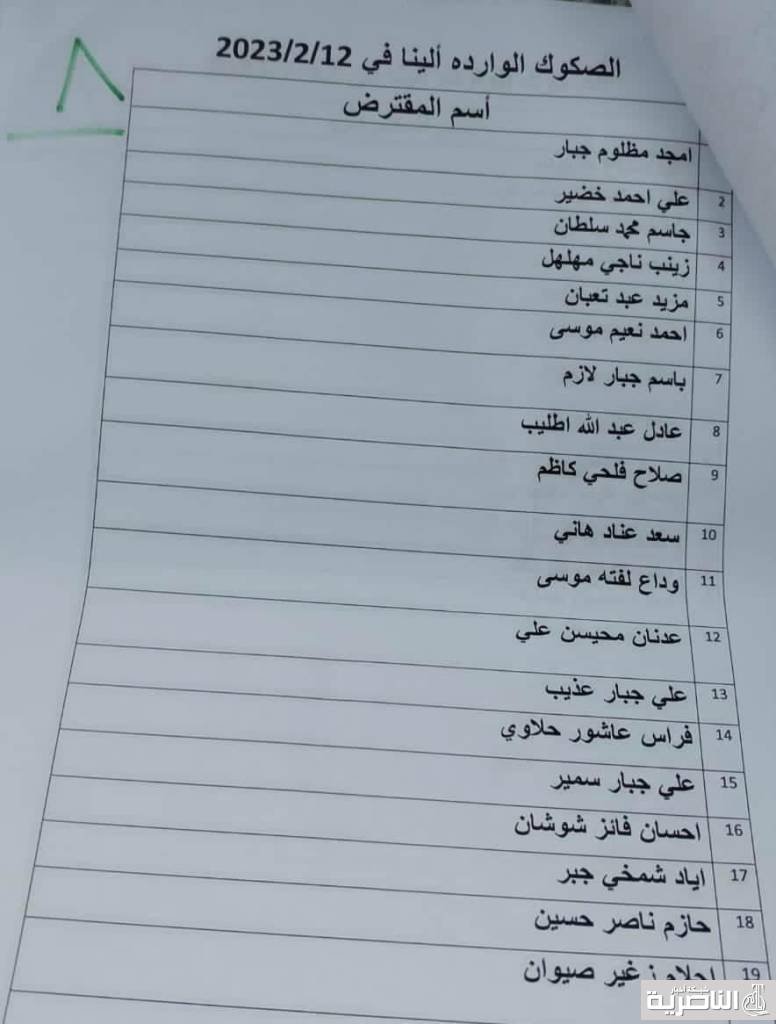 ٨
الصكوك الوارده ألينا في 2023/2/12
أسم المقترض
امجد مظلوم جبار
2 علي احمد خضير
3 جاسم محمد سلطان
4 زينب ناجي مهلهل
5 مزيد عبد تعبان
6 احمد نعيم موسى
7 باسم جبار لازم
8 عادل عبد الله اطليب
9 صلاح فلحي كاظم
10 سعد عناد هاني
11 وداع لفته موسى
12 عدنان محيسن علي
13 علي جبار عذيب
14 فراس عاشور حلاوي
15 علي جبار سمير
16 احسان فائز شوشان
17 اياد شمخي جبر
18 حازم ناصر حسين
19 احلام زغير صيوان
شبكة أخبار
الناصرية